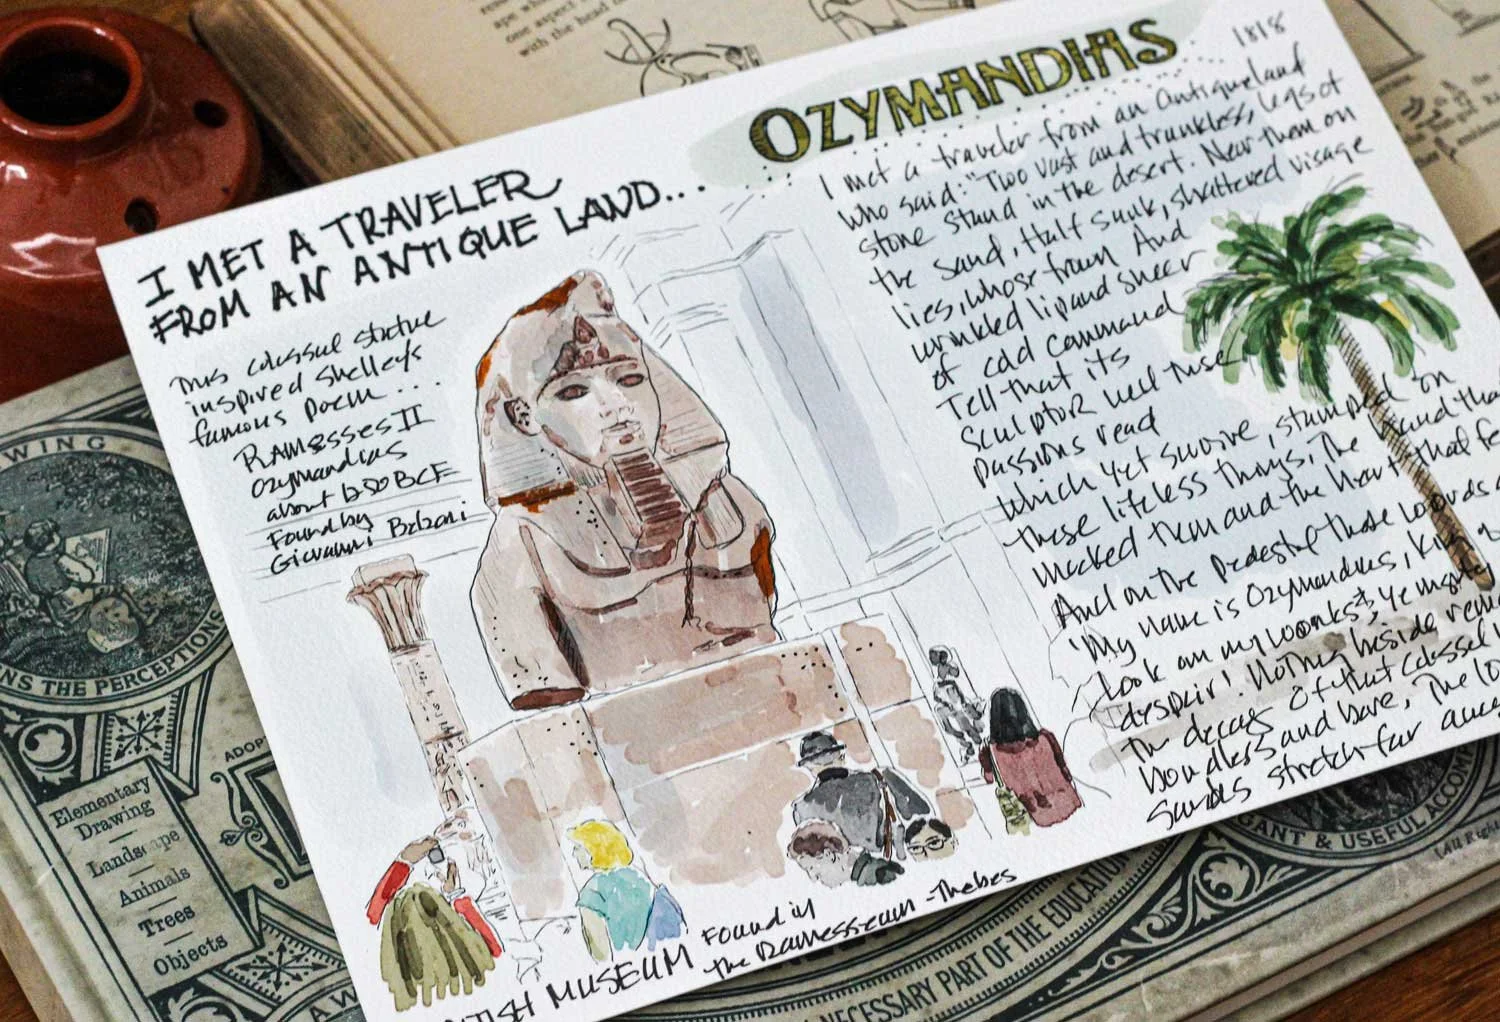 I MET A TRAVELER
FROM AN ANTIQUE LAND...
This colossal statue
inspired Shelleys
famous poem....
RAMESSES II
Ozymandias
about 1250 BCE
Found by
Giovanni Belzoni
OZYMANDIAS
1818
I met a traveler from an antique land
who said: "Two vast and trunkless legs of
stone stand in the desert. Near them on
the sand, Half sunk, shattered visage
lies, whose frown And
wrinkled lip and sneer
of cold command
Tell that its
Sculptor well those
passions read
which yet survive, stamped on
these lifeless things, The hand that
mocked them and the heart that fe
And on the pedestal those words a
'My name is Ozymandias, King o
Look on my works, ye mighty
despair! Nothing beside rema
The decay Of that colossal
boundless and bare, The lo
Sands stretch far away
TISH MUSEUM
Found in
the Ramesseum - Thebes
one aspect
with the head
WING
NS THE PERCEPTIONS
ADOP
Elementary
Drawing
Landscape
Animals
Trees
Objects
A W
NECESSARY PART OF THE EDUCATION
GANT & USEFUL ACCOM
(All Right